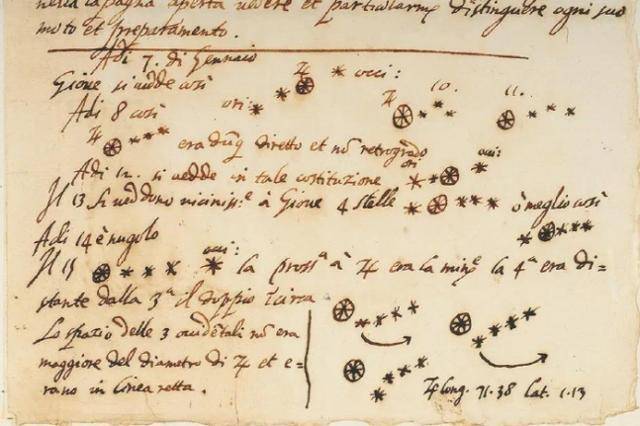 nella pagina aperta vedere et particularmẽ distinguere ogni suo
moto et preparamento.
Adi 7. di Gennaio
Giove si vedde così ♃ * occi:
Adi 8 così ori: * * ♃ 10. 11.
♃ * * * era dũq diretto et nõ retrogrado
Adi 12. si vedde in tale costituzione ori * * * occi:
Il 13 si veddono viciniss.e à Giove 4 stelle * * * * ò meglio così
Adi 14 è nugolo
Il 15 * * * * occi: la pross.a à ♃ era la minr.e la 4.a era di=
stante dalla 3.a il doppio i circa
Lo spazio delle 3 occidẽtali nõ era
maggiore del diametro di ♃ et e=
rano in linea retta.
♃ long. 71.38 Lat. 1.13